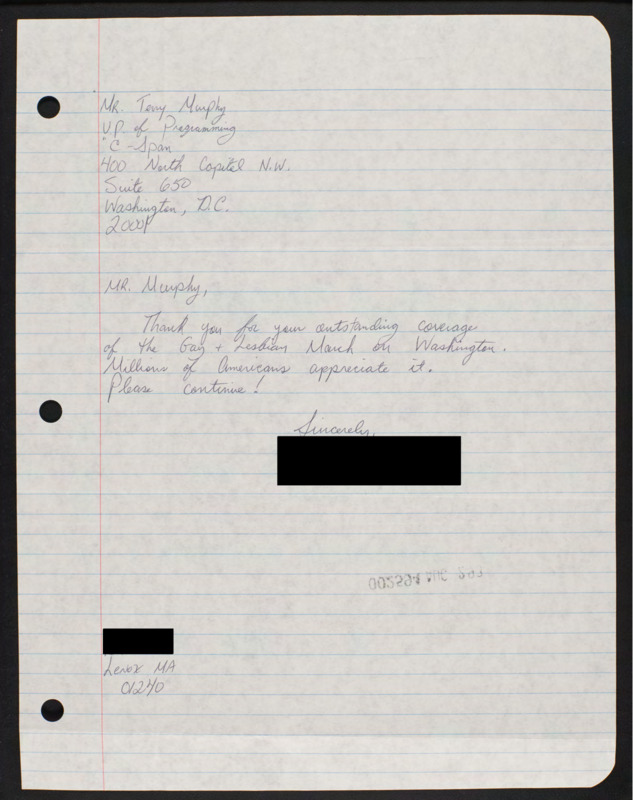 Mr. Terry Murphy
V.P. of Programming
C-Span
400 North Capitol N.W.
Suite 650
Washington, D.C.
20001
Mr. Murphy,
Thank you for your outstanding coverage
of the Gay + Lesbian March on Washington.
Millions of Americans appreciate it.
Please continue!
Sincerely,
002594 AUG
Lenox MA
01240